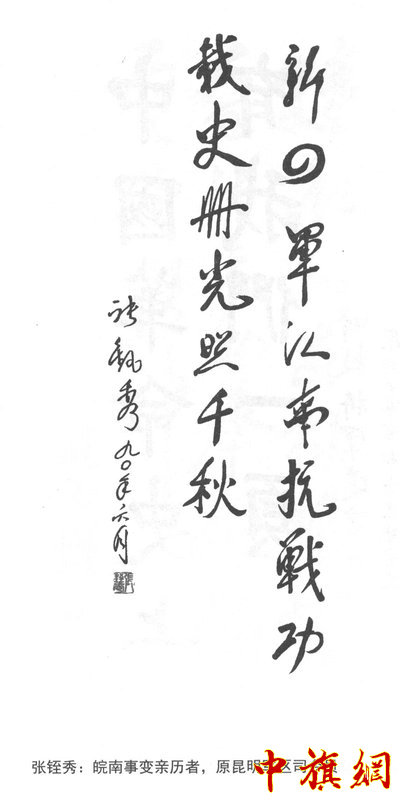 新四軍江南抗戰功
載史冊光照千秋
张铚秀 九〇年六月
张铚秀：皖南事变亲历者，原昆明军区司令员
中旗網